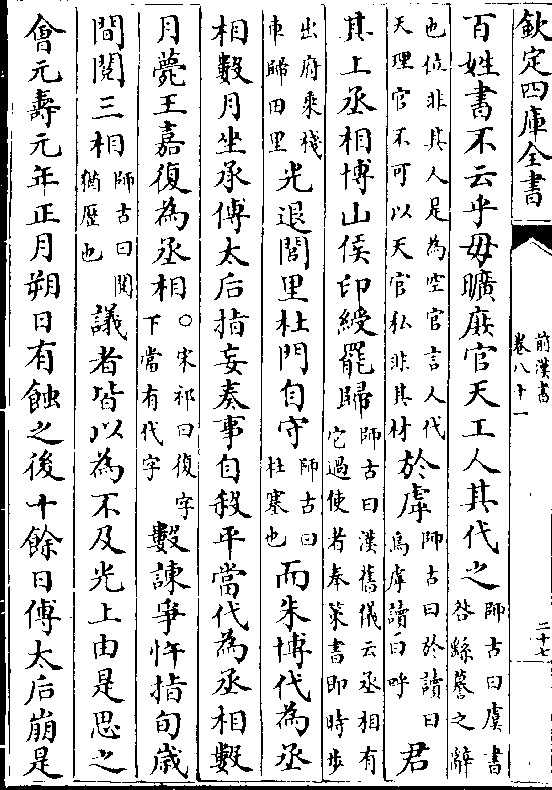 欽定四庫全書
前漢書
卷八十一
二十七
百姓書不云乎毋曠庶官天工人其代之師古曰虞書咎繇謩之辭
也位非其人是為空官言人代天理官不可以天官私非其材於虖師古曰於讀曰烏虖讀曰呼君
其上丞相博山侯印綬罷歸師古曰漢舊儀云丞相有它過使者奉策書即時步
出府乘棧車歸田里光退閭里杜門自守師古曰杜塞也而朱博代為丞
相數月坐承傅太后指妄奏事自殺平當代為丞相數
月薨王嘉復為丞相○宋祁曰復字下當有代字數諫爭忤指旬歲
間閱三相師古曰閱猶歷也議者皆以為不及光上由是思之
會元壽元年正月朔日有蝕之後十餘日傅太后崩是